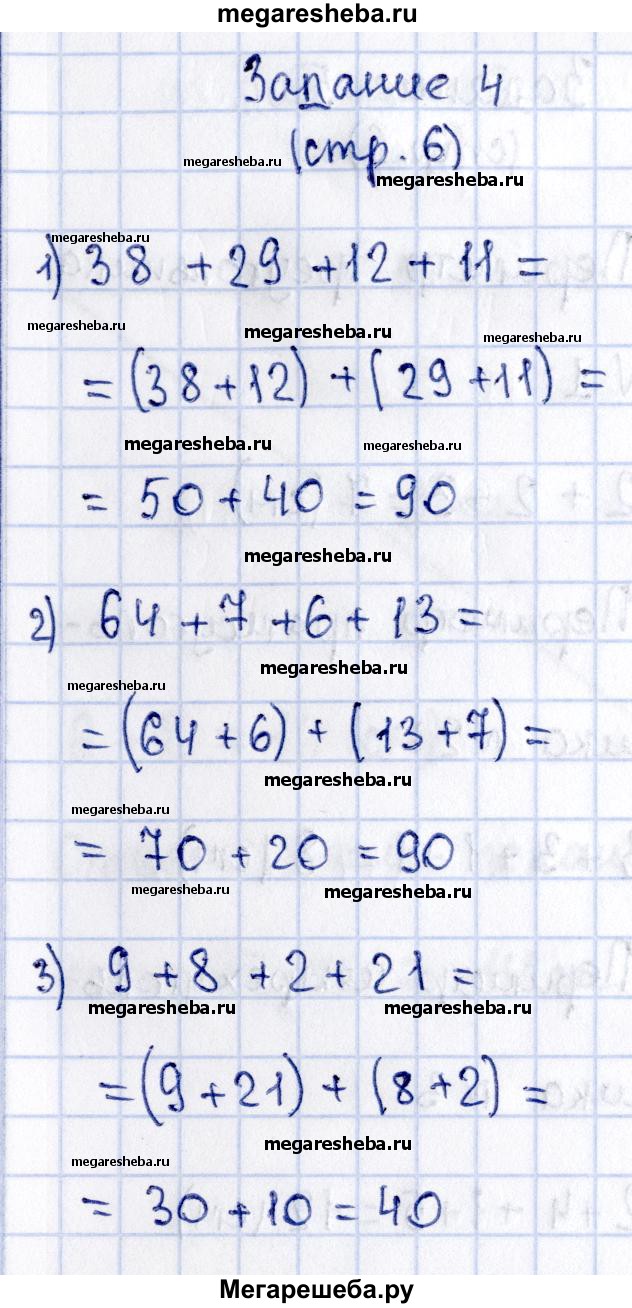 megaresheba.ru
Задание 4
megaresheba.ru
(стр. 6)
megaresheba.ru
megaresheba.ru
1) 38 + 29 + 12 + 11 =
megaresheba.ru
megaresheba.ru
megaresheba.ru
= (38 + 12) + (29 + 11) =
megaresheba.ru
megaresheba.ru
= 50 + 40 = 90
megaresheba.ru
2) 64 + 7 + 6 + 13 =
megaresheba.ru
megaresheba.ru
= (64 + 6) + (13 + 7) =
megaresheba.ru
megaresheba.ru
= 70 + 20 = 90
megaresheba.ru
megaresheba.ru
3) 9 + 8 + 2 + 21 =
megaresheba.ru
megaresheba.ru
= (9 + 21) + (8 + 2) =
megaresheba.ru
megaresheba.ru
= 30 + 10 = 40
Мегарешеба.ру